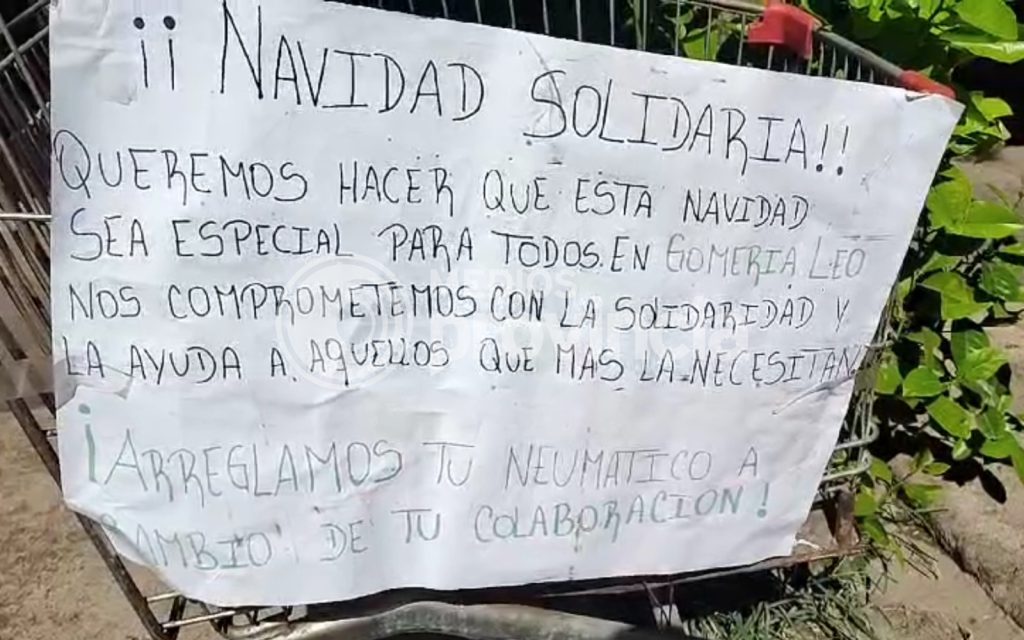 ¡¡ NAVIDAD SOLIDARIA!!
QUEREMOS HACER QUE ESTA NAVIDAD
SEA ESPECIAL PARA TODOS. EN GOMERIA LEO
NOS COMPROMETEMOS CON LA SOLIDARIDAD Y
LA AYUDA A AQUELLOS QUE MAS LA NECESITAN
¡ARREGLAMOS TU NEUMATICO A
CAMBIO DE TU COLABORACION!
MEDIOS
provincia